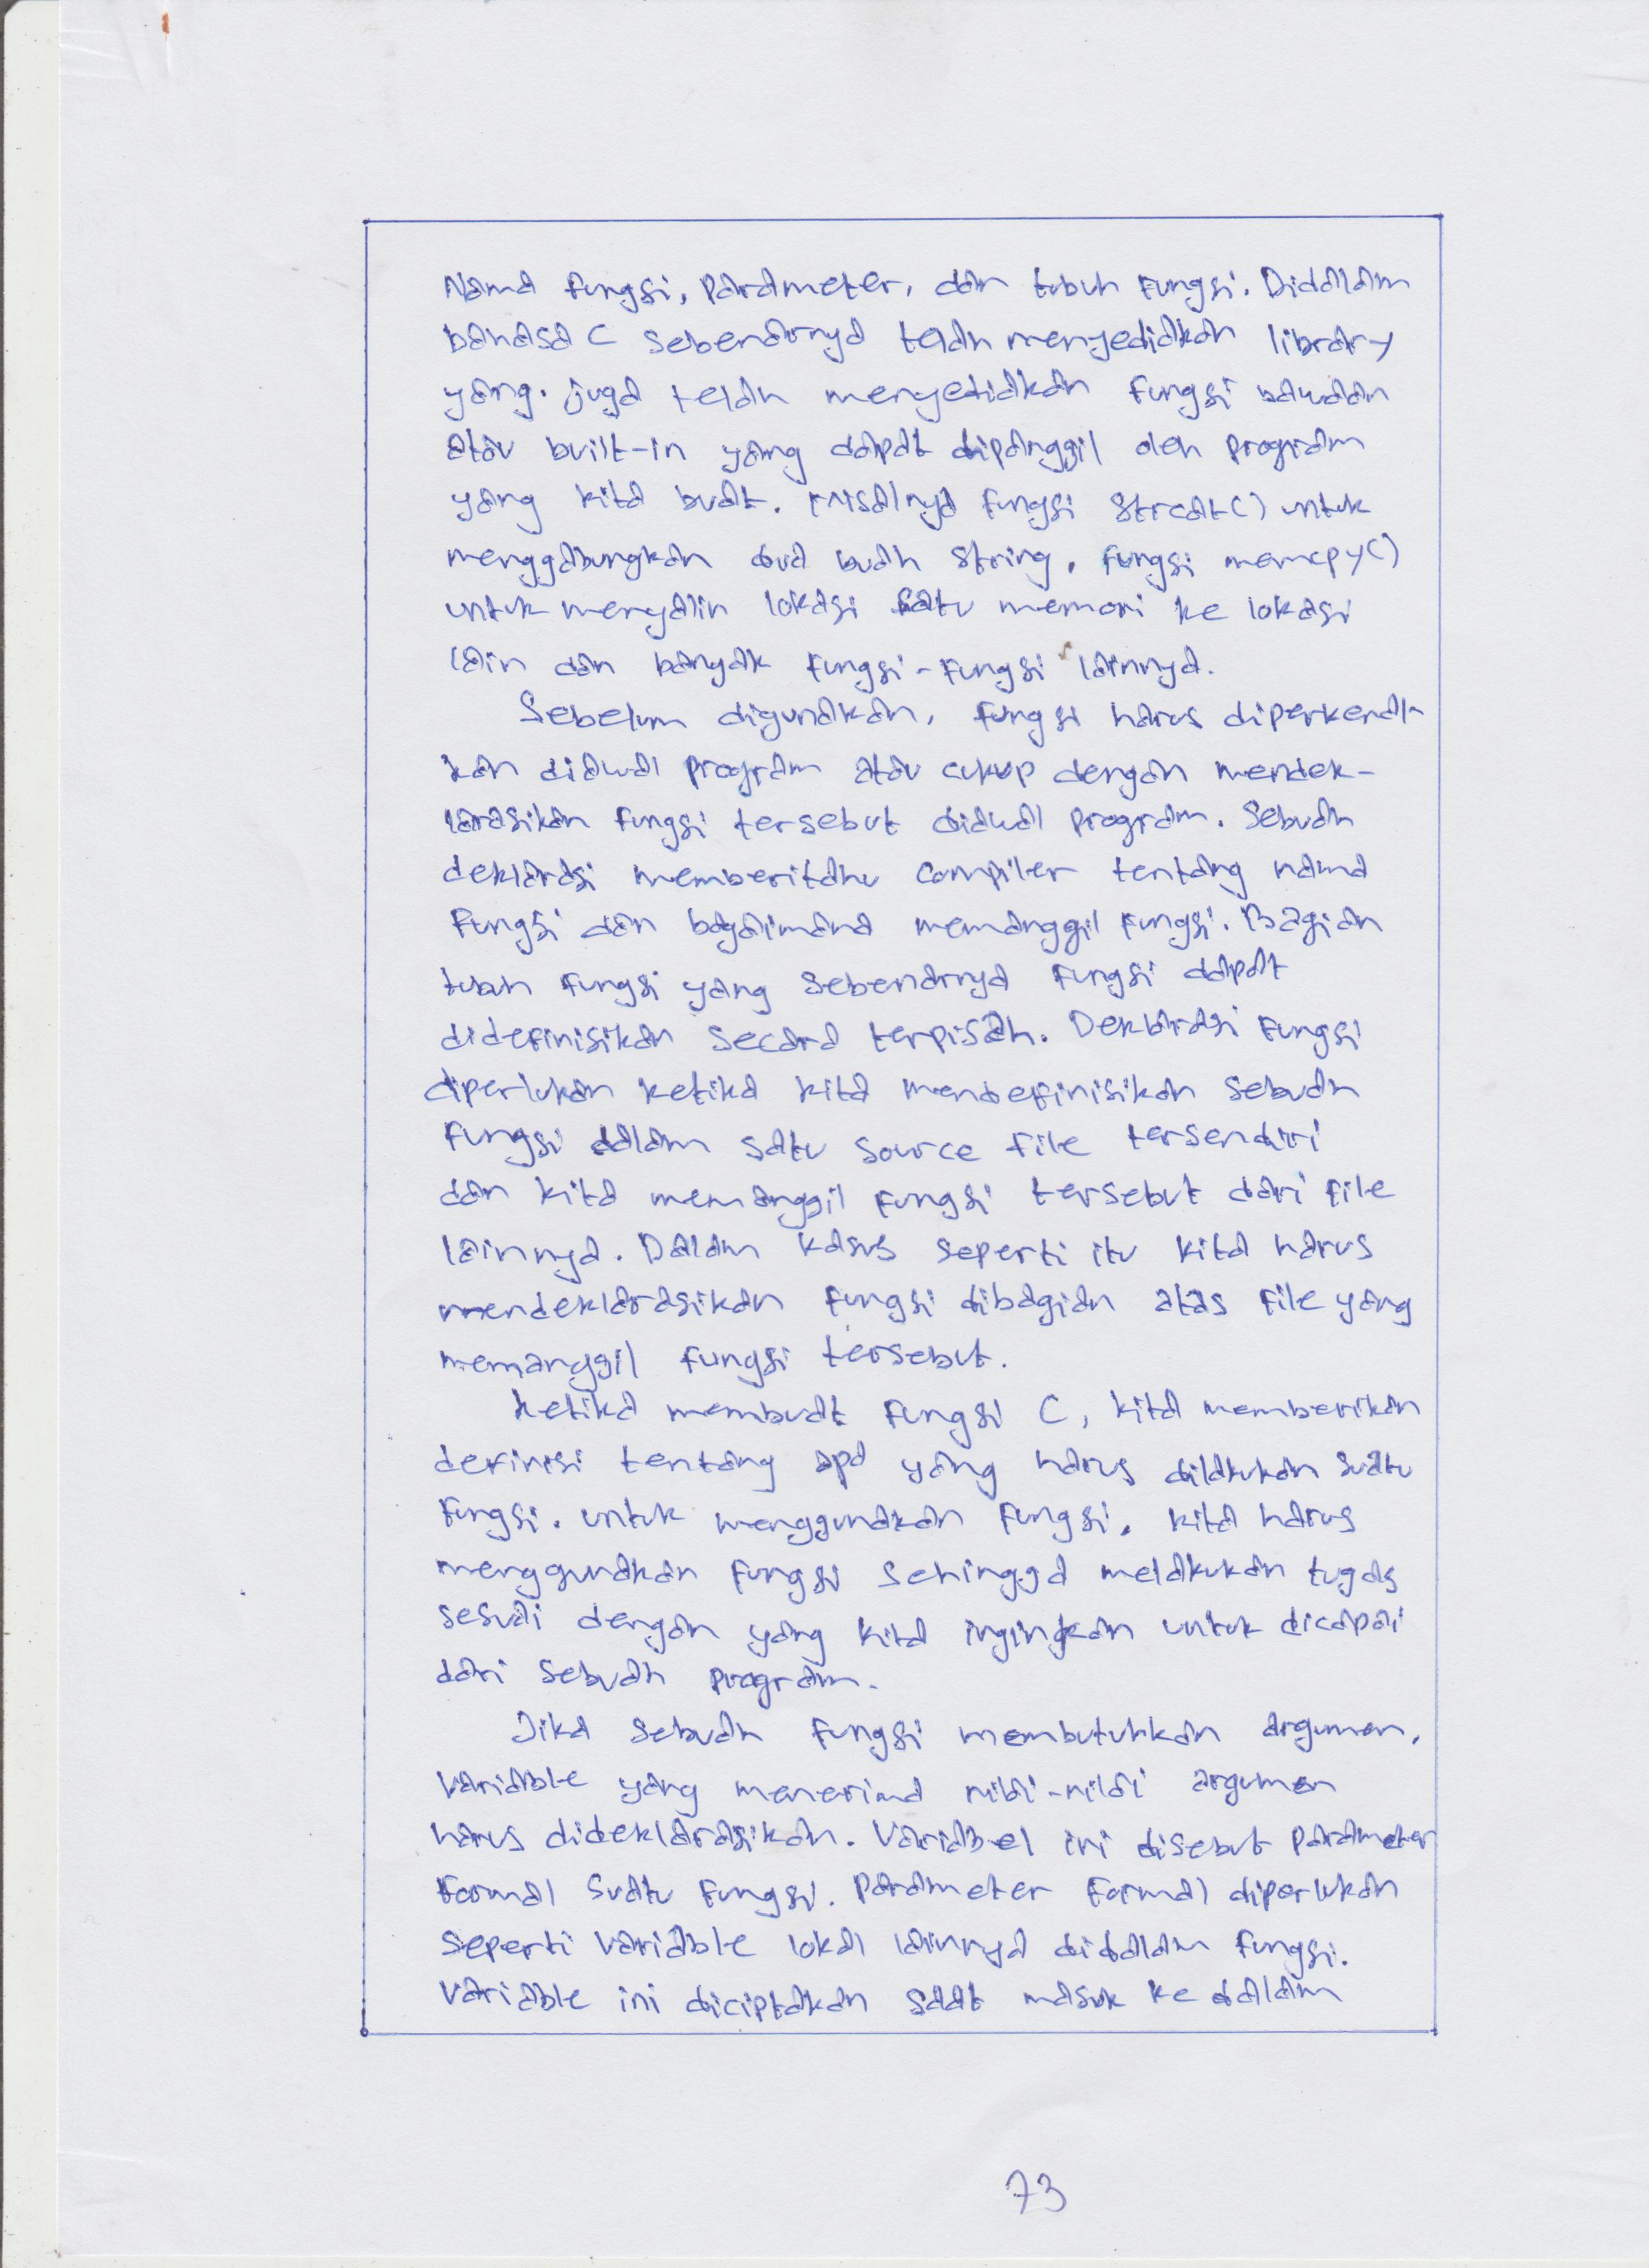 Nama fungsi, parameter, dan tubuh fungsi. Didalam
bahasa C sebenarnya telah menyediakan library
yang. juga telah menyediakan fungsi bawaan
atau built-in yang dapat dipanggil oleh program
yang kita buat. Misalnya fungsi strcat() untuk
menggabungkan dua buah string, fungsi memcpy()
untuk menyalin lokasi satu memori ke lokasi
lain dan banyak fungsi-fungsi lainnya.
Sebelum digunakan, fungsi harus diperkenal-
kan diawal program atau cukup dengan mendek-
larasikan fungsi tersebut diawal program. Sebuah
deklarasi memberitahu compiler tentang nama
fungsi dan bagaimana memanggil fungsi. Bagian
tubuh fungsi yang sebenarnya fungsi dapat
didefinisikan secara terpisah. Deklarasi fungsi
diperlukan ketika kita mendefinisikan sebuah
fungsi dalam satu source file tersendiri
dan kita memanggil fungsi tersebut dari file
lainnya. Dalam kasus seperti itu kita harus
mendeklarasikan fungsi dibagian atas file yang
memanggil fungsi tersebut.
Ketika membuat fungsi C, kita memberikan
definisi tentang apa yang harus dilakukan suatu
fungsi. untuk menggunakan fungsi, kita harus
menggunakan fungsi sehingga melakukan tugas
sesuai dengan yang kita inginkan untuk dicapai
dari sebuah program.
Jika sebuah fungsi membutuhkan argumen,
variable yang menerima nilai-nilai argumen
harus dideklarasikan. Variabel ini disebut parameter
formal suatu fungsi. Parameter formal diperlukan
seperti variable lokal lainnya didalam fungsi.
Variable ini diciptakan saat masuk ke dalam
73